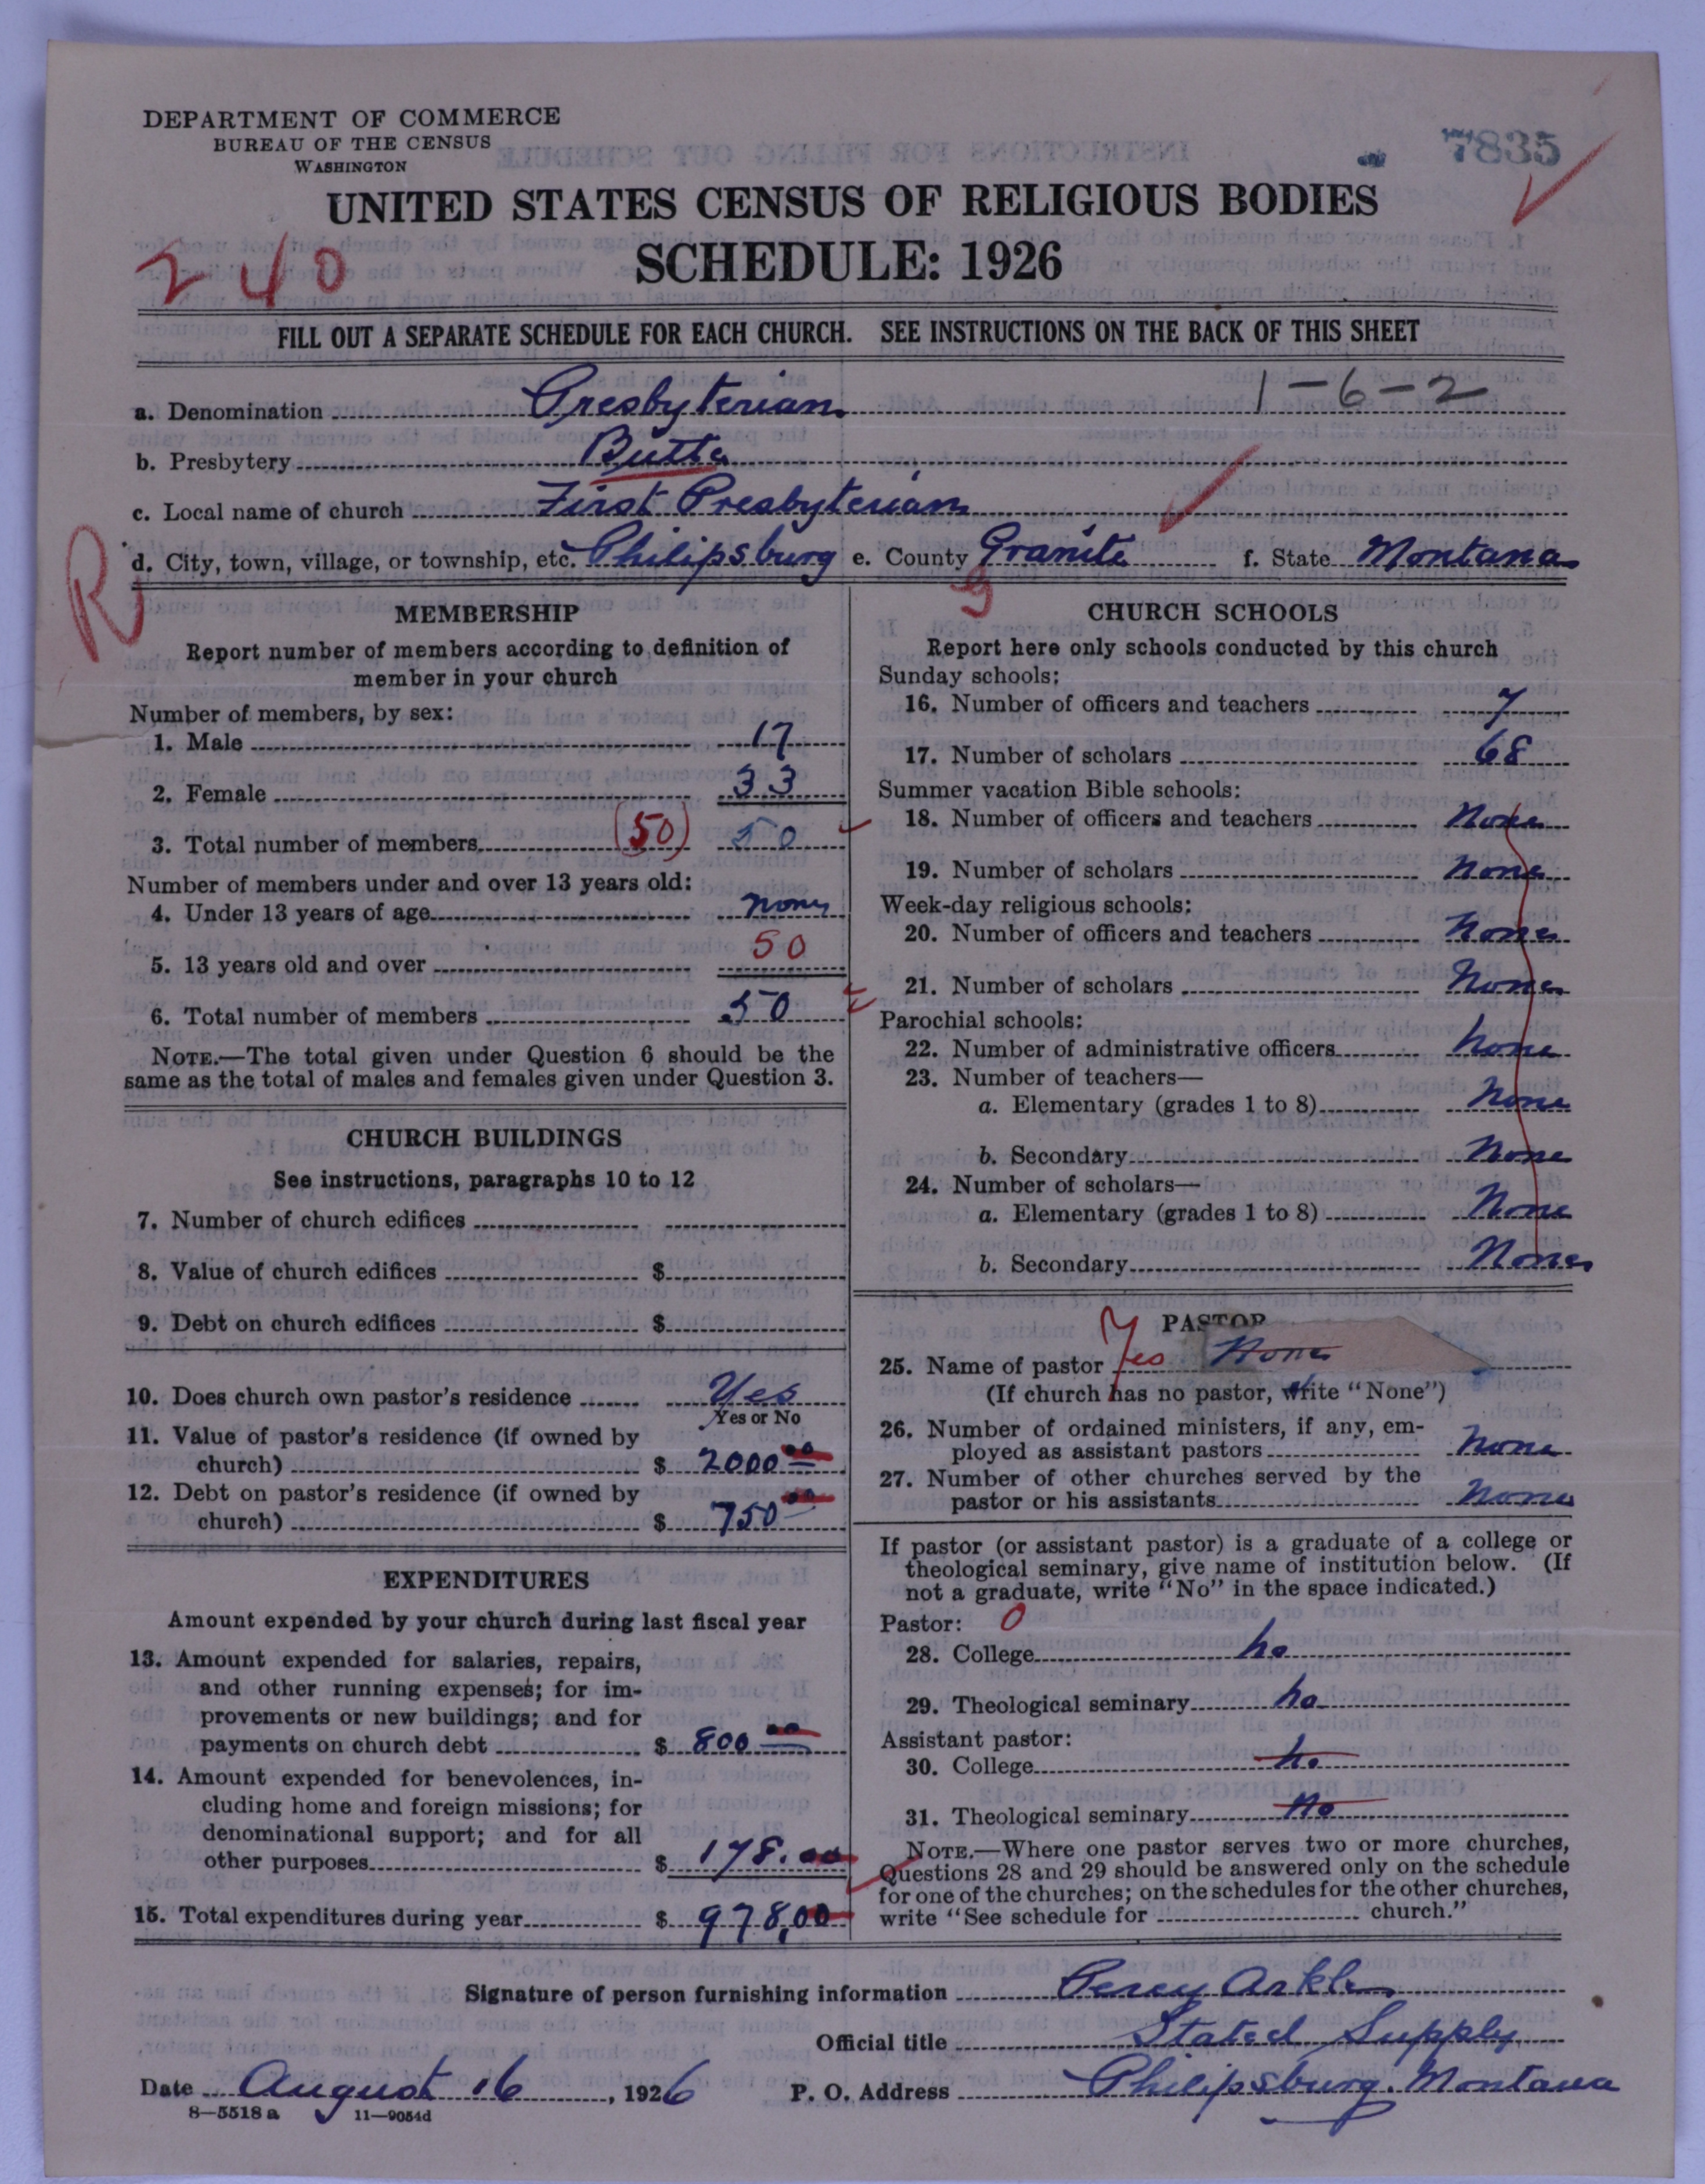 DEPARTMENT OF COMMERCE
BUREAU OF THE CENSUS
WASHINGTON
7835
UNITED STATES CENSUS OF RELIGIOUS BODIES
SCHEDULE: 1926
240
FILL OUT A SEPARATE SCHEDULE FOR EACH CHURCH. SEE INSTRUCTIONS ON THE BACK OF THIS SHEET
1-6-2
a. Denomination Presbyterian
b. Presbytery Butte
c. Local name of church First Presbyterian
R
d. City, town, village, or township, etc. Philipsburg e. County Granite f. State Montana
9
MEMBERSHIP
Report number of members according to definition of
member in your church
Number of members, by sex:
1. Male 17
2. Female 33
3. Total number of members (50) 50
Number of members under and over 13 years old:
4. Under 13 years of age none
5. 13 years old and over 50
6. Total number of members 50
NOTE.—The total given under Question 6 should be the
same as the total of males and females given under Question 3.
CHURCH BUILDINGS
See instructions, paragraphs 10 to 12
7. Number of church edifices
8. Value of church edifices $
9. Debt on church edifices $
10. Does church own pastor's residence Yes
Yes or No
11. Value of pastor's residence (if owned by
church) $ 2000.00
12. Debt on pastor's residence (if owned by
church) $ 750.00
EXPENDITURES
Amount expended by your church during last fiscal year
13. Amount expended for salaries, repairs,
and other running expenses; for im-
provements or new buildings; and for
payments on church debt $ 800.00
14. Amount expended for benevolences, in-
cluding home and foreign missions; for
denominational support; and for all
other purposes $ 178.00
15. Total expenditures during year $ 978,00
CHURCH SCHOOLS
Report here only schools conducted by this church
Sunday schools:
16. Number of officers and teachers 7
17. Number of scholars 68
Summer vacation Bible schools:
18. Number of officers and teachers None
19. Number of scholars None
Week-day religious schools:
20. Number of officers and teachers None
21. Number of scholars None
Parochial schools:
22. Number of administrative officers None
23. Number of teachers—
a. Elementary (grades 1 to 8) None
b. Secondary None
24. Number of scholars—
a. Elementary (grades 1 to 8) None
b. Secondary None
PASTOR
25. Name of pastor Yes None
(If church has no pastor, write "None")
26. Number of ordained ministers, if any, em-
ployed as assistant pastors None
27. Number of other churches served by the
pastor or his assistants None
If pastor (or assistant pastor) is a graduate of a college or
theological seminary, give name of institution below. (If
not a graduate, write "No" in the space indicated.)
Pastor: 0
28. College no
29. Theological seminary no
Assistant pastor:
30. College no
31. Theological seminary no
NOTE.—Where one pastor serves two or more churches,
Questions 28 and 29 should be answered only on the schedule
for one of the churches; on the schedules for the other churches,
write "See schedule for church."
Signature of person furnishing information Percy Arkle
Official title Stated Supply
Date August 16, 1926 P. O. Address Philipsburg. Montana
8—5518a 11—9054d